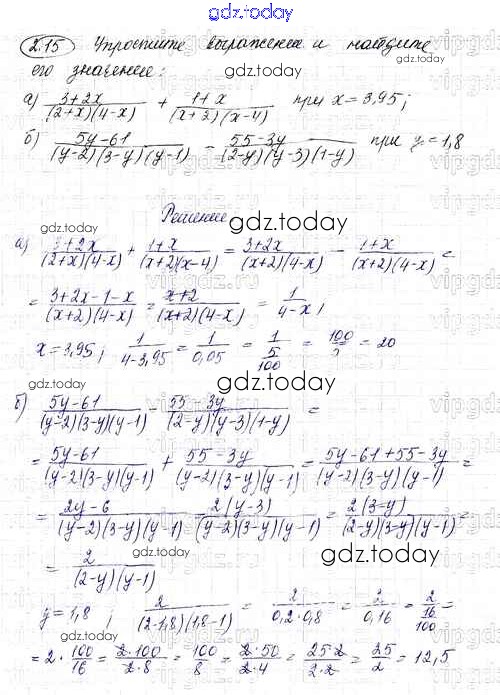 gdz.today
2.15 Упростите выражение и найдите
его значение:
а) (3+2x)/((2+x)(4-x)) + (1+x)/((x+2)(x-4)) при x=3,95;
б) (5y-61)/((y-2)(3-y)(y-1)) - (55-3y)/((2-y)(y-3)(1-y)) при y=1,8
Решение
а) (3+2x)/((2+x)(4-x)) + (1+x)/((x+2)(x-4)) = (3+2x)/((x+2)(4-x)) - (1+x)/((x+2)(4-x)) =
= (3+2x-1-x)/((x+2)(4-x)) = (x+2)/((x+2)(4-x)) = 1/(4-x);
x=3,95; 1/(4-3,95) = 1/0,05 = 1/(5/100) = 100/5 = 20
б) (5y-61)/((y-2)(3-y)(y-1)) - (55-3y)/((2-y)(y-3)(1-y)) =
= (5y-61)/((y-2)(3-y)(y-1)) + (55-3y)/((y-2)(3-y)(y-1)) = (5y-61+55-3y)/((y-2)(3-y)(y-1)) =
= (2y-6)/((y-2)(3-y)(y-1)) = (2(y-3))/((y-2)(3-y)(y-1)) = (2(3-y))/((2-y)(3-y)(y-1)) =
= 2/((2-y)(y-1))
y=1,8; 2/((2-1,8)(1,8-1)) = 2/(0,2·0,8) = 2/0,16 = 2/(16/100) =
= 2·100/16 = (2·100)/(2·8) = 100/8 = (2·50)/(2·4) = (25·2)/(2·2) = 25/2 = 12,5